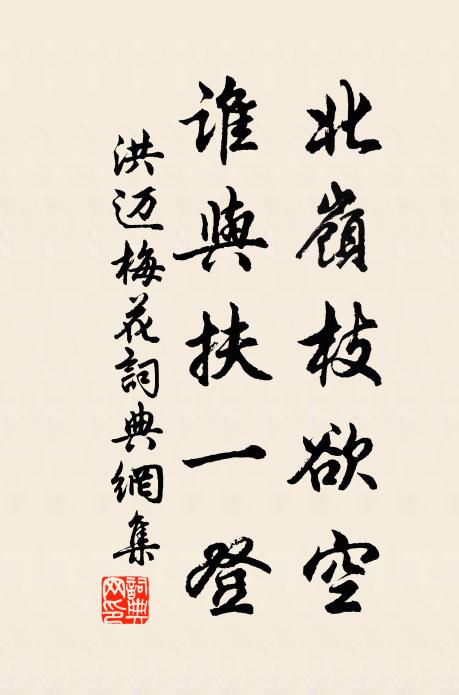 北嶺枝欲空
誰與扶一登
洪迈梅花詞典網集
詞典网印